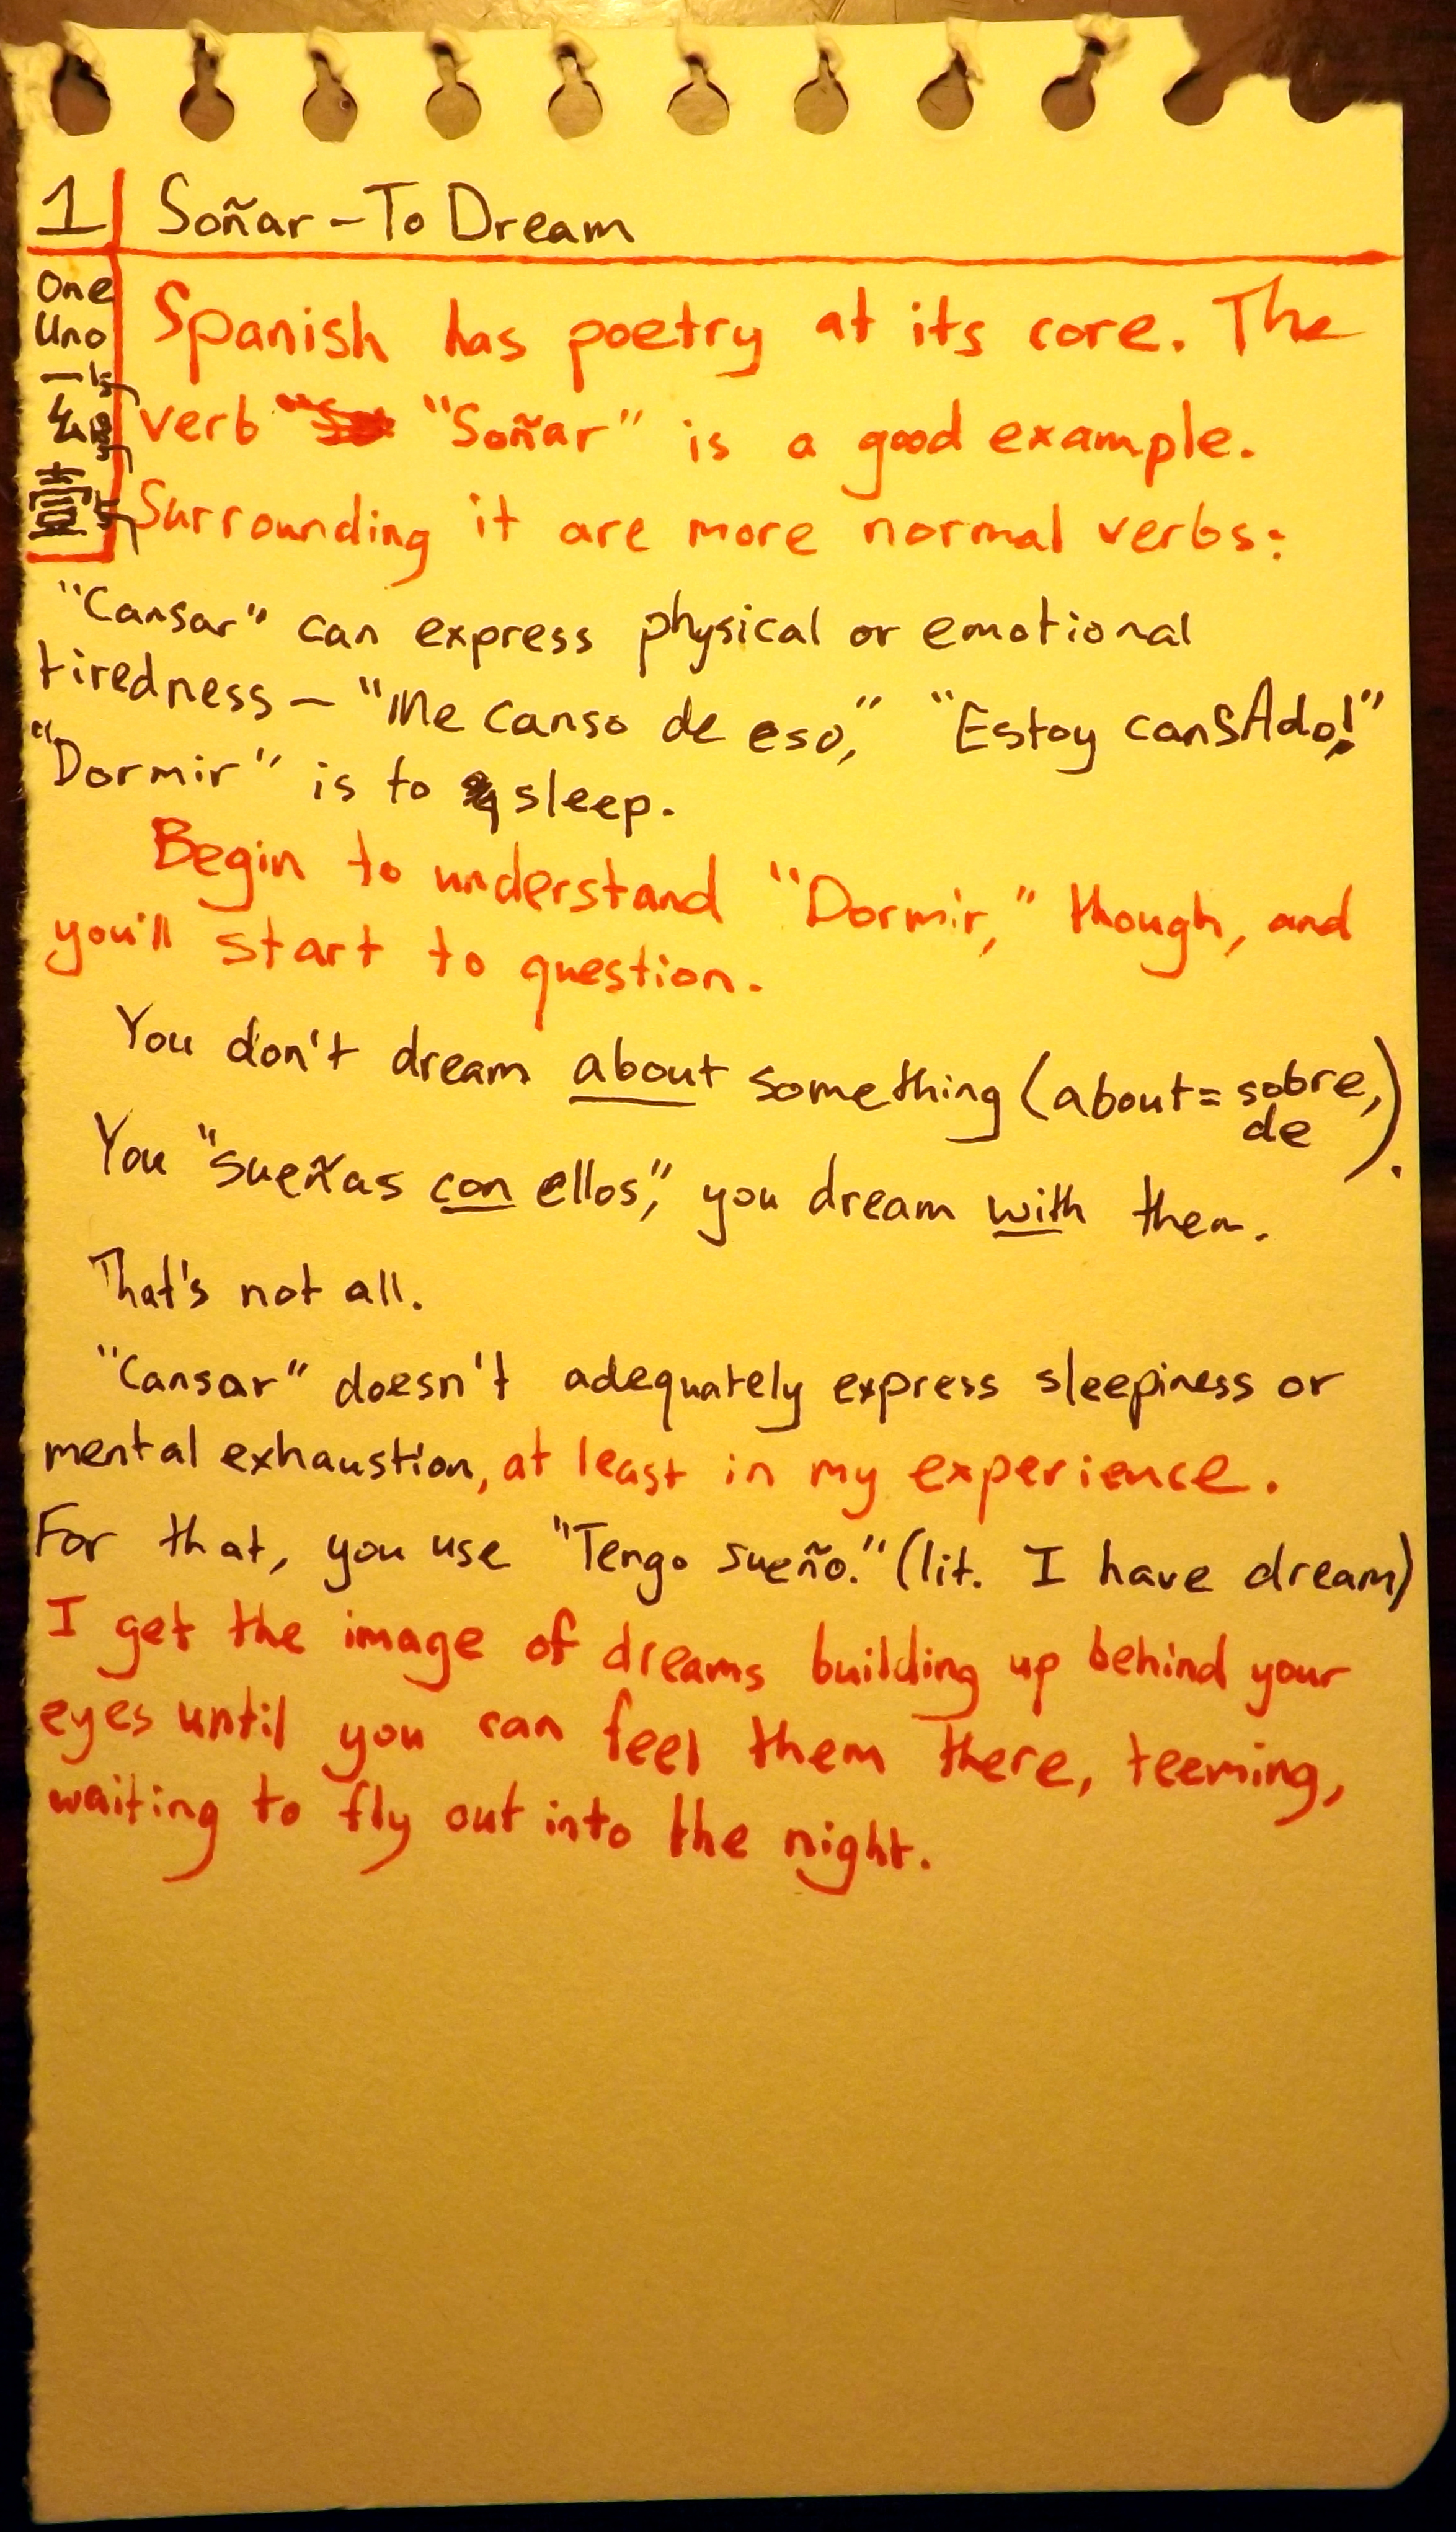 1 Soñar - To Dream
One
Uno
一
幺
壹
Spanish has poetry at its core. The
verb "Soñar" is a good example.
Surrounding it are more normal verbs:
"Cansar" can express physical or emotional
tiredness - "Me canso de eso," "Estoy canSAdo!"
"Dormir" is to sleep.
Begin to understand "Dormir," though, and
you'll start to question.
You don't dream about something (about = sobre,
de).
You "sueñas con ellos," you dream with them.
That's not all.
"Cansar" doesn't adequately express sleepiness or
mental exhaustion, at least in my experience.
For that, you use "Tengo sueño." (lit. I have dream)
I get the image of dreams building up behind your
eyes until you can feel them there, teeming,
waiting to fly out into the night.